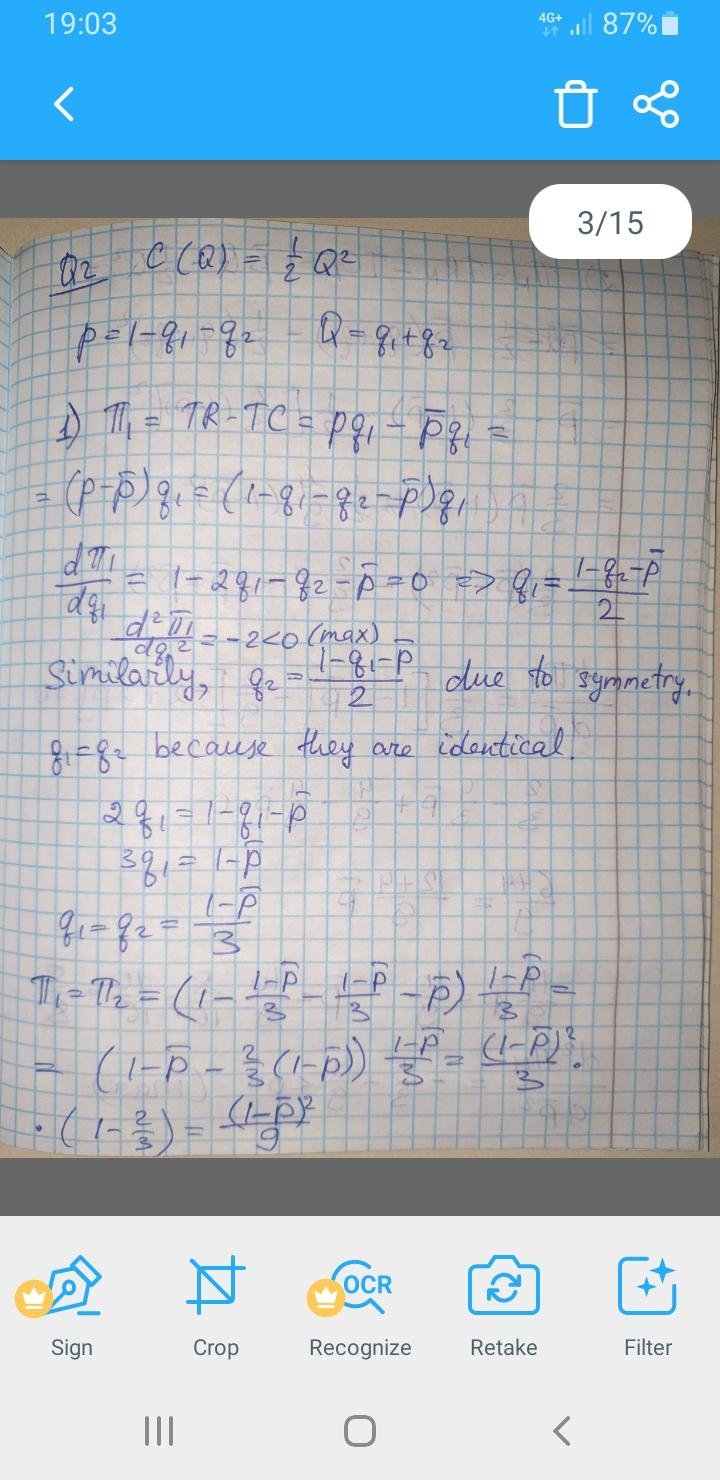 19:03
4G+ 87%
3/15
Q2 C(Q) = 1/2 Q²
p = 1 - q₁ - q₂ Q = q₁ + q₂
1) π₁ = TR - TC = pq₁ - p̄q₁ =
= (p - p̄) q₁ = (1 - q₁ - q₂ - p̄) q₁
dπ₁/dq₁ = 1 - 2q₁ - q₂ - p̄ = 0 => q₁ = (1 - q₂ - p̄)/2
d²π₁/dq₁² = -2 < 0 (max)
Similarly, q₂ = (1 - q₁ - p̄)/2 due to symmetry.
q₁ = q₂ because they are identical.
2q₁ = 1 - q₁ - p̄
3q₁ = 1 - p̄
q₁ = q₂ = (1 - p̄)/3
π₁ = π₂ = (1 - (1 - p̄)/3 - (1 - p̄)/3 - p̄) (1 - p̄)/3 =
= (1 - p̄ - 2/3 (1 - p̄)) (1 - p̄)/3 = (1 - p̄)²/3 ·
· (1 - 2/3) = (1 - p̄)²/9
OCR
Sign Crop Recognize Retake Filter